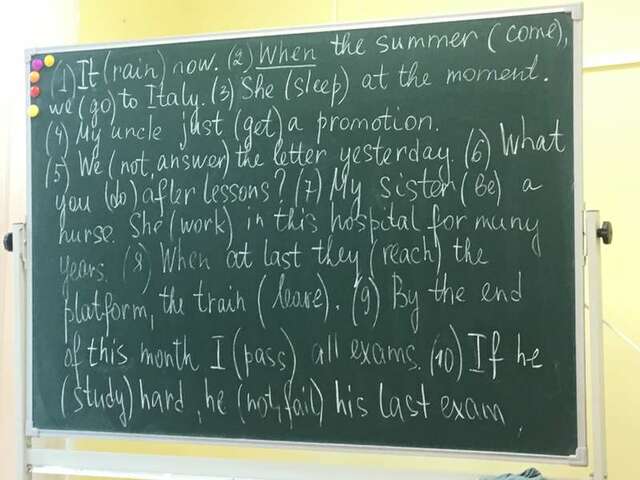 (1) It (rain) now. (2) When the summer (come),
we (go) to Italy. (3) She (sleep) at the moment.
(4) My uncle just (get) a promotion.
(5) We (not, answer) the letter yesterday. (6) What
you (do) after lessons? (7) My sister (be) a
nurse. She (work) in this hospital for many
years. (8) When at last they (reach) the
platform, the train (leave). (9) By the end
of this month I (pass) all exams. (10) If he
(study) hard, he (not, fail) his last exam.